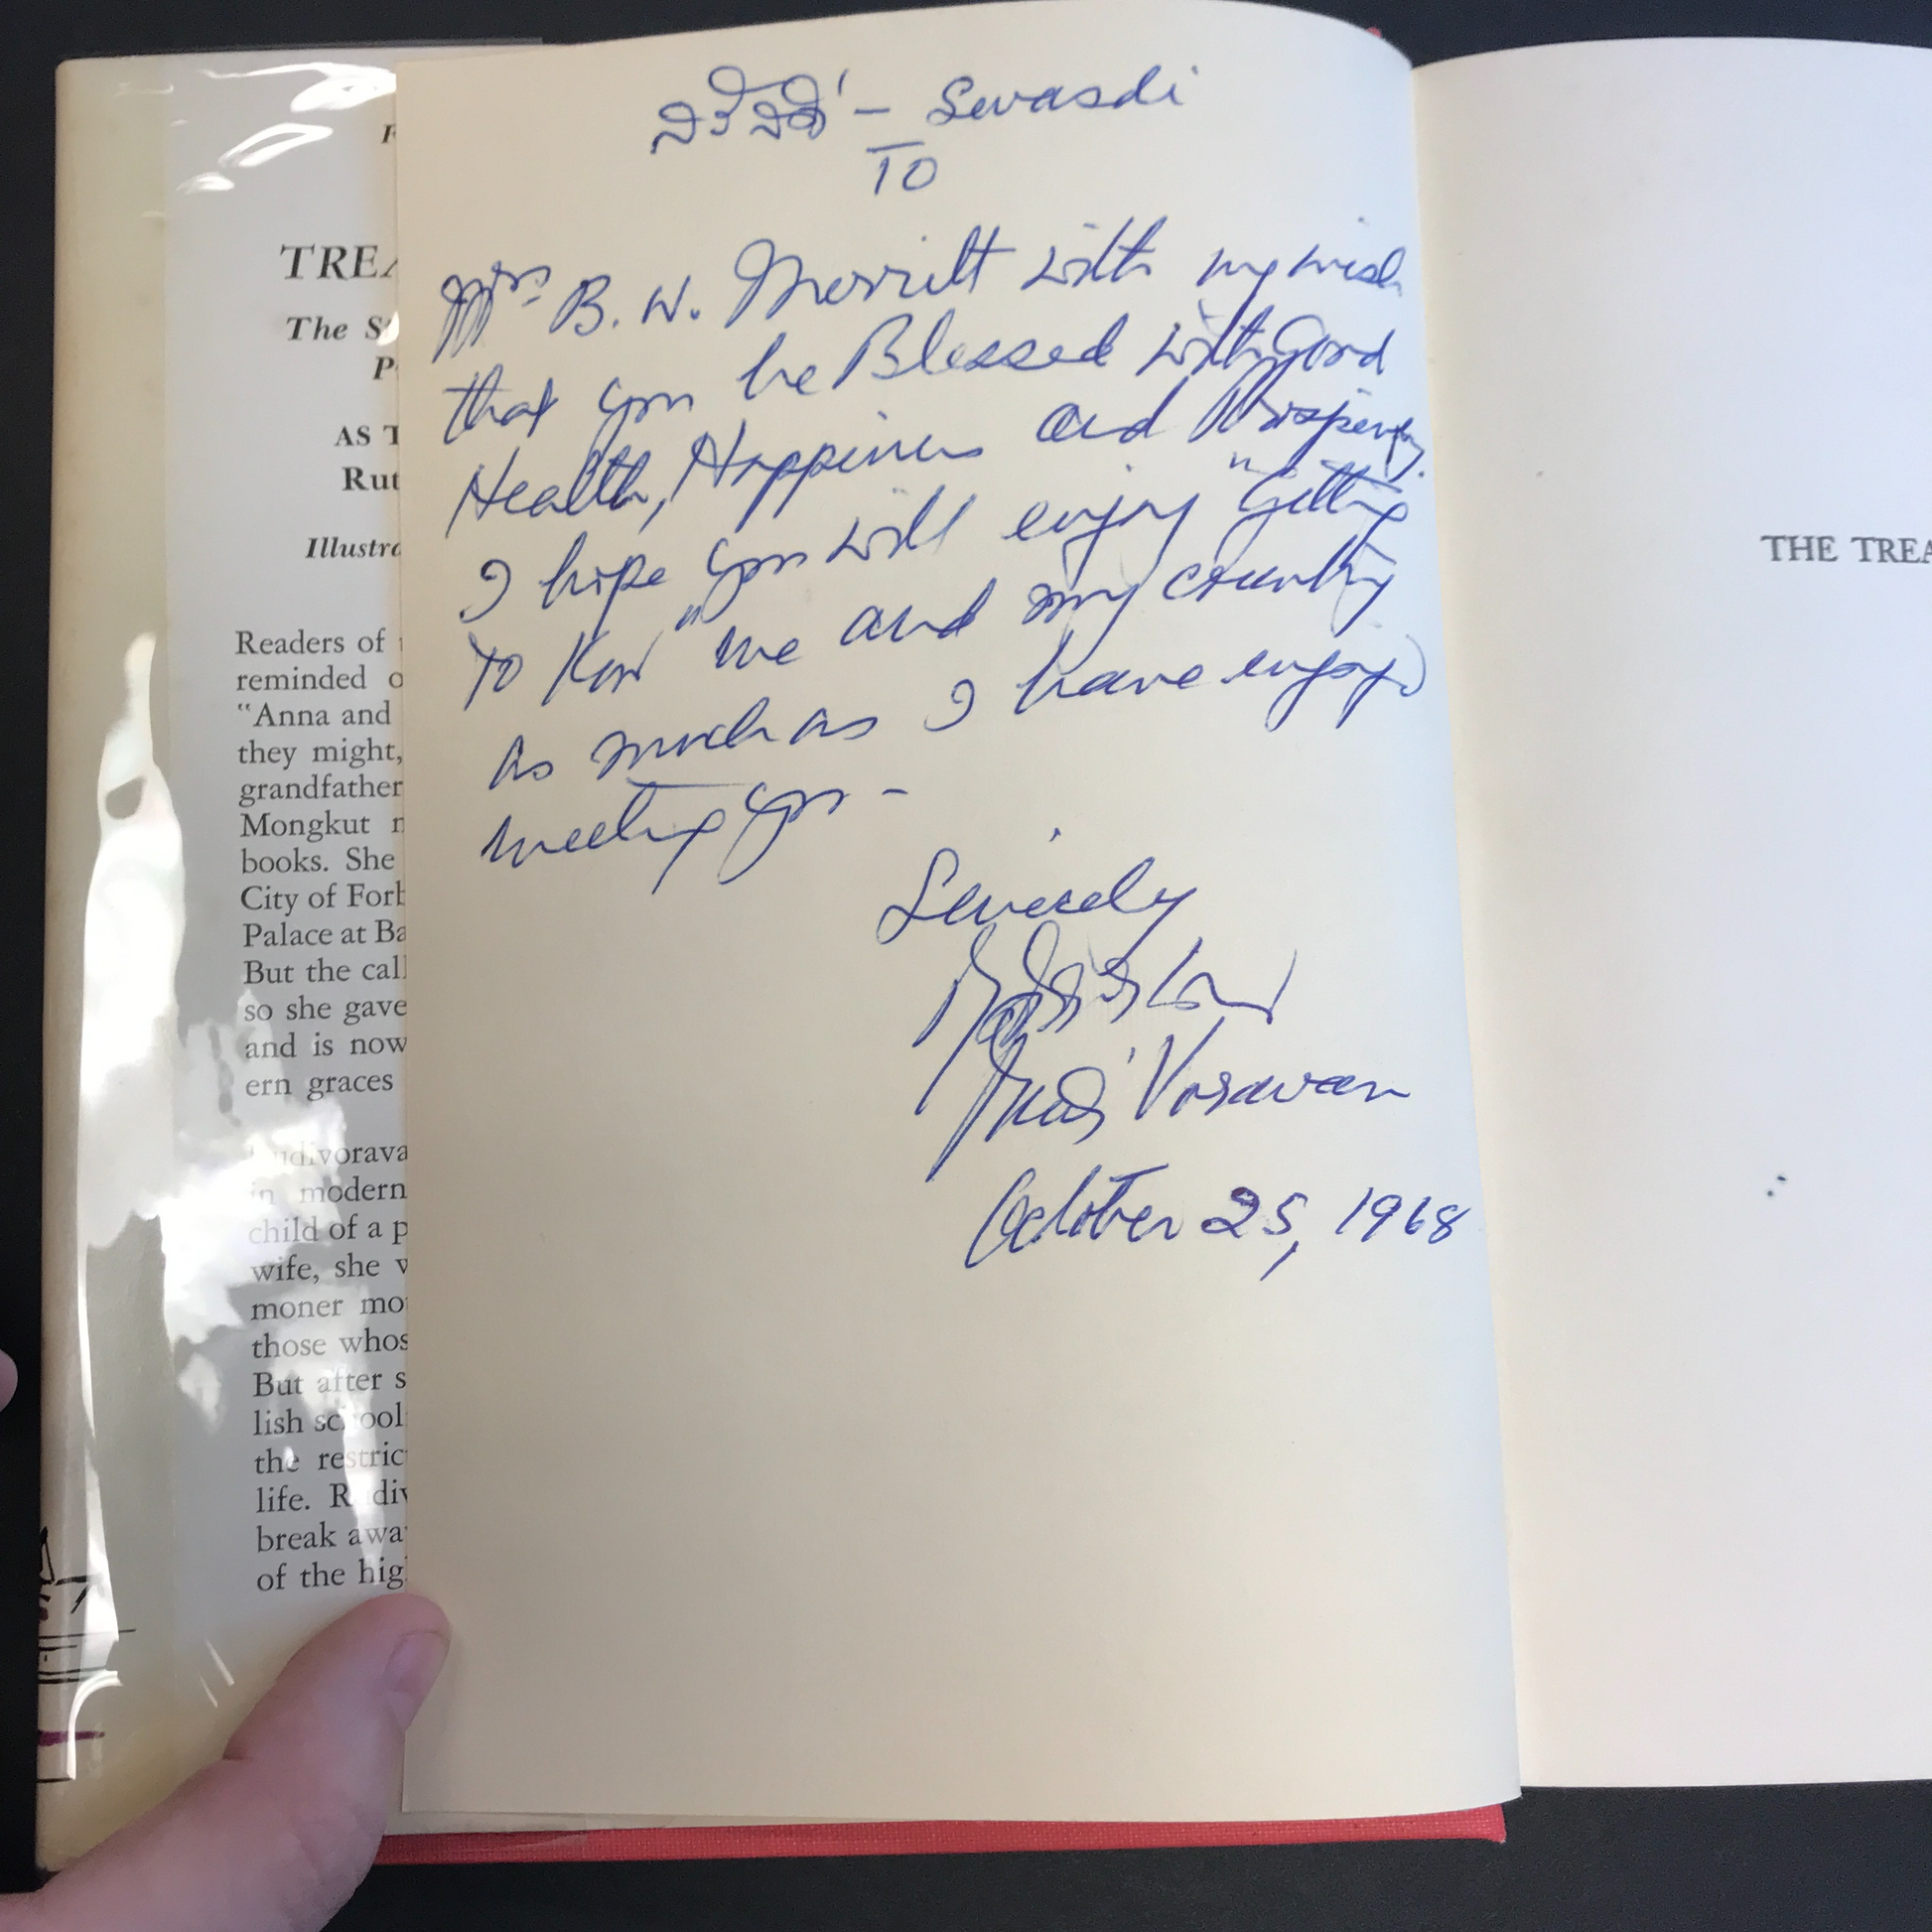 สวัสดี - Sawasdi
TO
Mrs B. W. Merritt with my wish
that you be Blessed with Good
Health, Happiness and Prosperity.
I hope you will enjoy "Getting
to Know" me and my country
as much as I have enjoyed
meeting you -
Sincerely
Rudi Voravan
October 25, 1968
TREA
The S
P
AS T
Rut
Illustra
Readers of
reminded o
"Anna and
they might,
grandfather
Mongkut
books. She
City of Forb
Palace at Ba
But the call
so she gave
and is now
ern graces
udivorava
in modern
child of a p
wife, she w
moner mo
those whos
But after s
lish school
the restric
life. Rudiv
break awa
of the hig
THE TREA